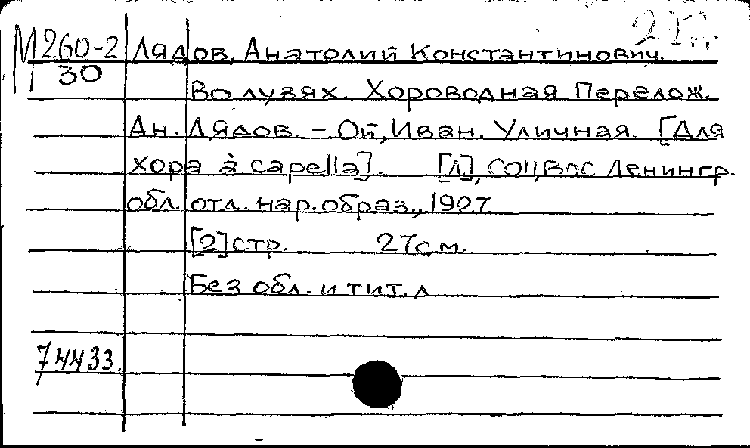 М260-2 Лядов, Анатолий Константинович.
30
Во лузях. Хороводная Перелож.
Ан. Лядов. – Ой, Иван. Уличная. [Для
хора à capella]. [Л], Ленингр.
обл. отл. нар. образ., 1927
[2] стр. 27 см.
Без обл. и тит. л
74433.